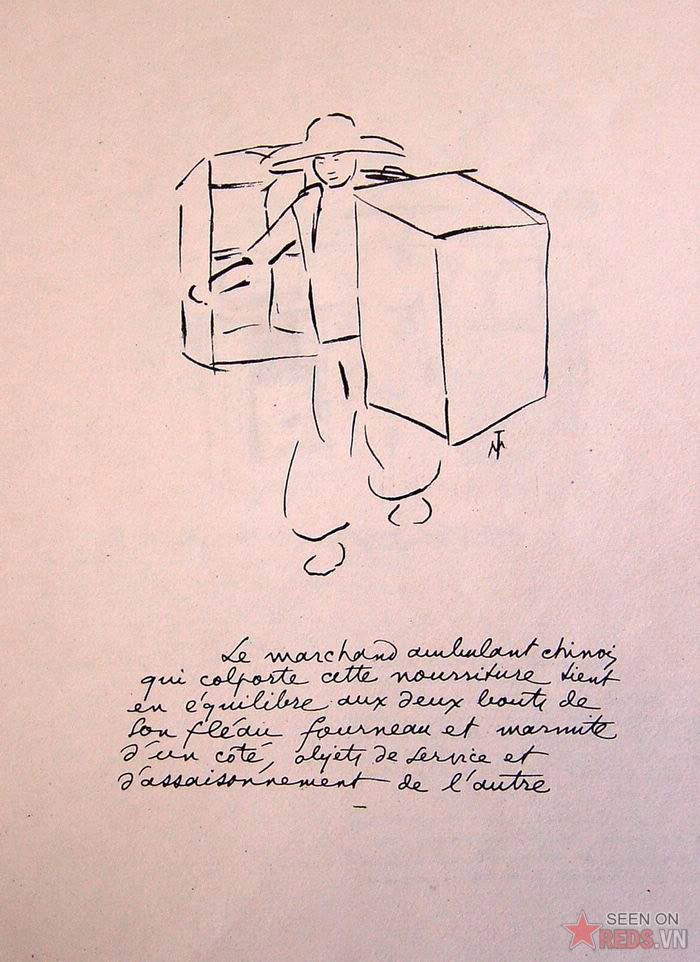 Le marchand ambulant chinois
qui colporte cette nourriture tient
en équilibre aux deux bouts de
son fléau fourneau et marmite
d'un coté, objets de service et
d'assaisonnement de l'autre
SEEN ON
REDS.VN